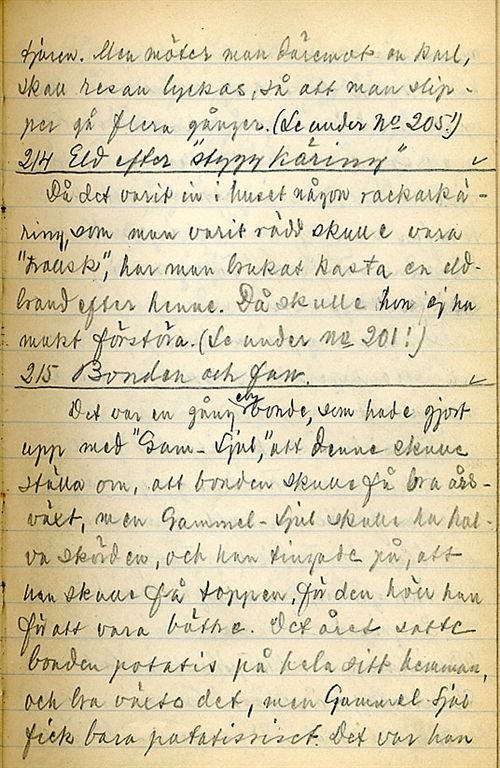 tjuren. Men möter man däremot en karl,
skall resan lyckas, så att man slip-
per gå flera gånger. (Se under No 205!)
214 Eld efter "stygg käring"
Då det varit in i huset någon rackarkä-
ring, som man varit rädd skulle vara
"trollsk", har man brukat kasta en eld-
brand efter henne. Då skulle hon ej ha
makt förstöra. (Se under no 201!)
215 Bonden och fan.
Det var en gång en bonde, som hade gjort
upp med "Gam-Sjul", att denne skulle
ställa om, att bonden skulle få bra års-
växt, men Gammel-Sjul skulle ha hal-
va skörden, och han tingade på, att
han skulle få toppen, för den höll han
för att vara bättre. Det året satte
bonden potatis på hela sitt hemman,
och bra växte det, men Gammel-Sjul
fick bara potatisriset. Det var han